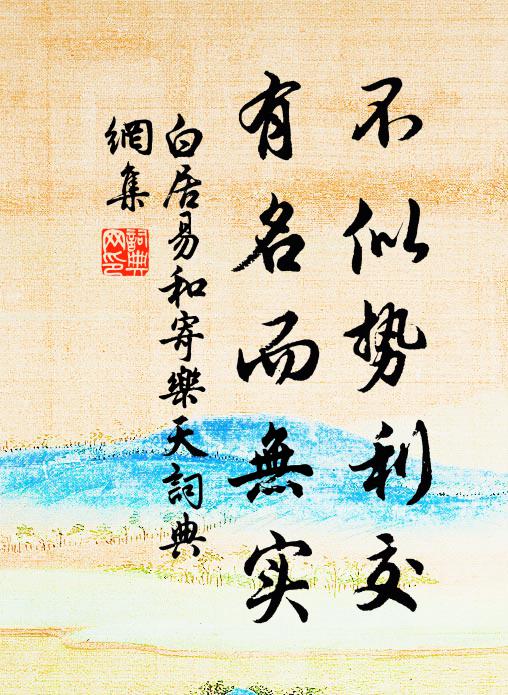 不似势利交
有名而無实
白居易和寄樂天詞典
網集
詞典
网印